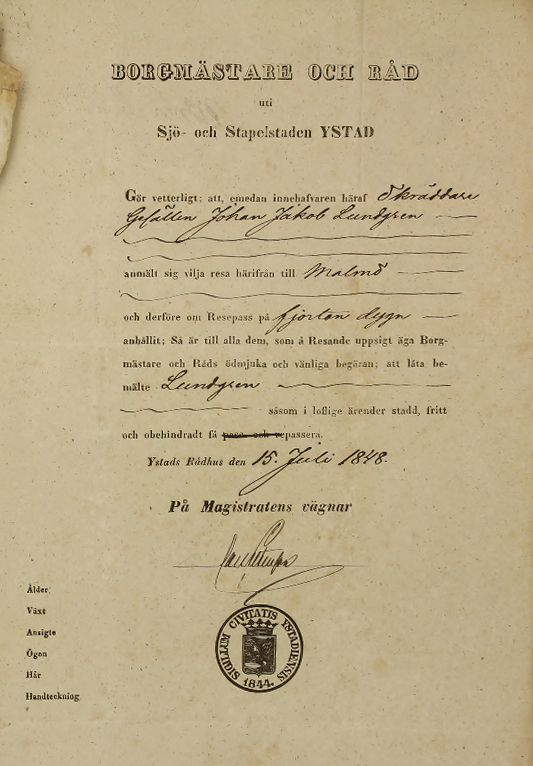 BORGMÄSTARE OCH RÅD
uti
Sjö- och Stapelstaden YSTAD
Gör vetterligt; att, emedan innehafvaren häraf Skräddare
Gesällen Johan Jakob Lundgren
anmält sig vilja resa härifrån till Malmö
och derföre om Resepass på fjorton dygn
anhållit; Så är till alla dem, som å Resande uppsigt äga Borg-
mästare och Råds ödmjuka och vänliga begäran; att låta be-
mälte Lundgren
såsom i loflige ärender stadd, fritt
och obehindradt få pass- och repassera.
Ystads Rådhus den 15. Juli 1848.
På Magistratens vägnar
SIGILLUM CIVITATIS YSTADIENSIS
1844.
Ålder
Växt
Ansigte
Ögon
Hår
Handteckning